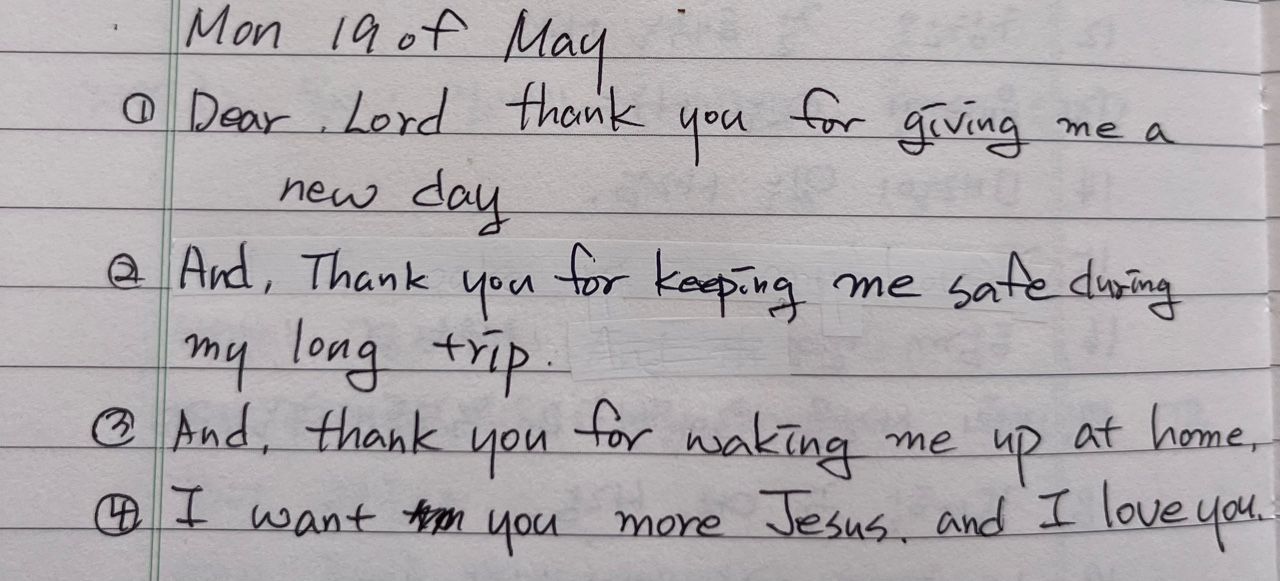 Mon 19 of May
① Dear. Lord thank you for giving me a
new day
② And, Thank you for keeping me safe during
my long trip.
③ And, thank you for waking me up at home,
④ I want you more Jesus. and I love you.